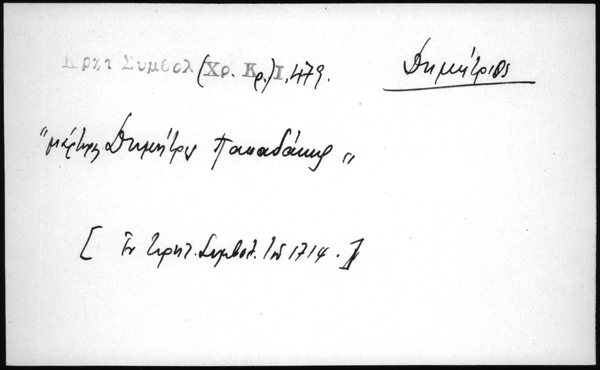 Κρητ Συμβολ (Χρ. Κρ.) Ι, 479. Δημήτριος
"μάρτυς Δημήτρις Παπαδάκης"
[ Ἐν Κρητ. Συμβολ. τοῦ 1714. ]